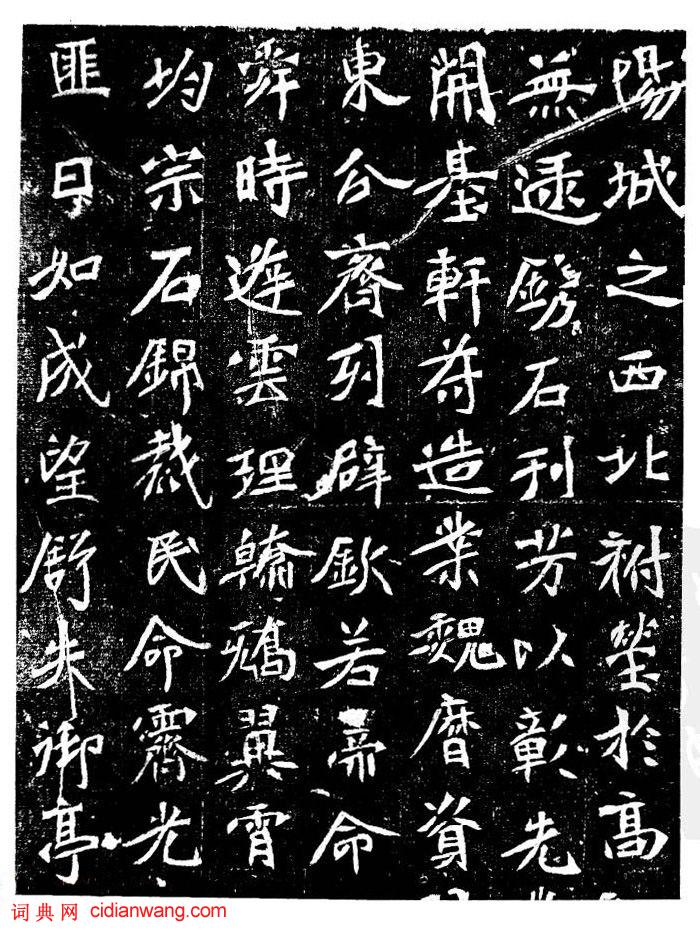 陽城之西北祔塋於高
無鐫石刊芳以彰先
開基軒苻造業魏曆資
東公齊列辟欽若帝命
舜時遊雲理翰矯翼霄
均宗石錦裁民命霽光
匪日如成望舒失御亭
词典网 cidianwang.com